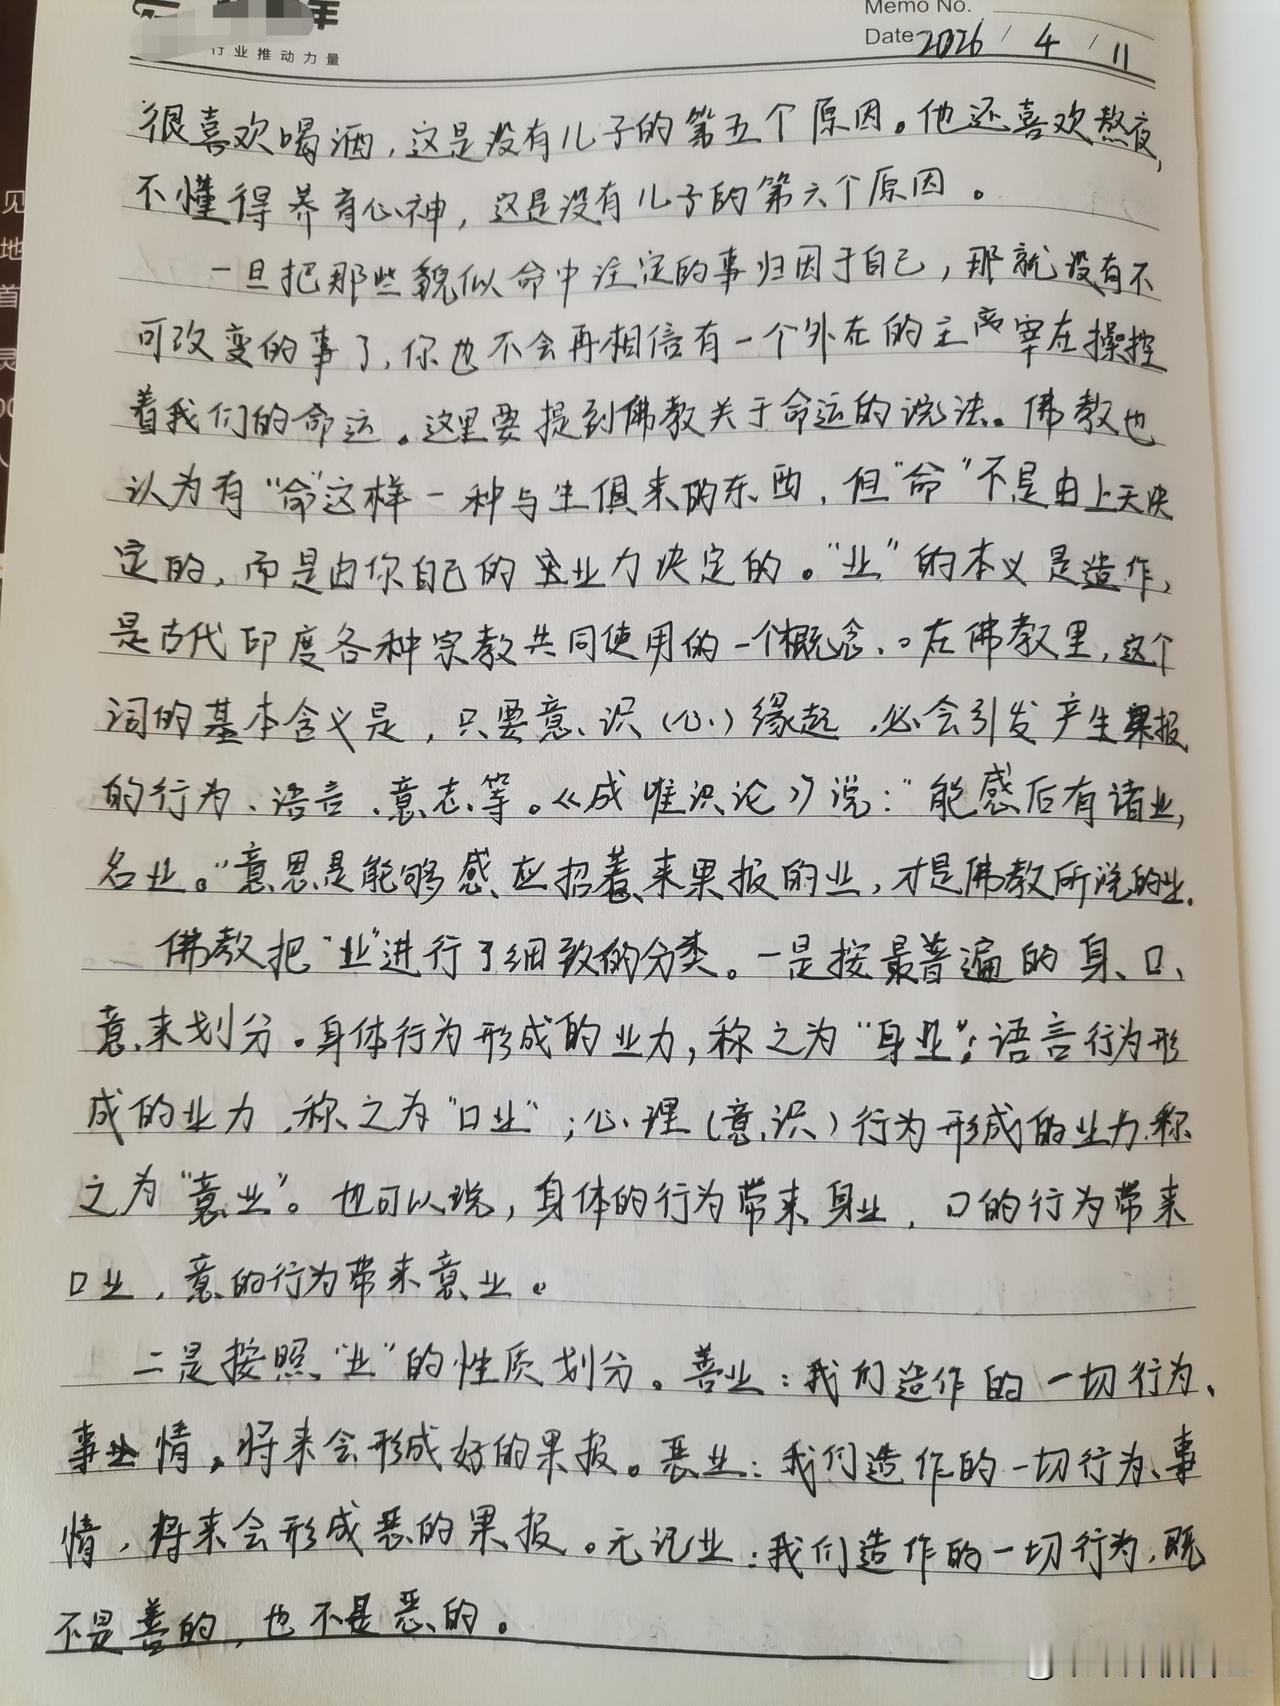 年
Memo No.
行业推动力量
Date 2026 / 4 / 11
很喜欢喝酒,这是没有儿子的第五个原因。他还喜欢熬夜,
不懂得养育心神,这是没有儿子的第六个原因。
一旦把那些貌似命中注定的事归因于自己,那就没有不
可改变的事了,你也不会再相信有一个外在的主宰在操控
着我们的命运。这里要提到佛教关于命运的说法。佛教也
认为有“命”这样一种与生俱来的东西,但“命”不是由上天决
定的,而是由你自己的业力决定的。“业”的本义是造作,
是古代印度各种宗教共同使用的一个概念、。在佛教里,这个
词的基本含义是,只要意识(心)缘起,必会引发产生果报
的行为、语言、意志等。《成唯识论》说:“能感后有诸业,
名业。”意思是能够感应招着来果报的业,才是佛教所说的业.
佛教把“业”进行了细致的分类。一是按最普遍的身、口、
意来划分。身体行为形成的业力,称之为“身业”;语言行为形
成的业力,称之为“口业”;心理(意识)行为形成的业力称
之为“意业”。也可以说,身体的行为带来身业,口的行为带来
口业,意的行为带来意业。
二是按照“业”的性质划分。善业:我们造作的一切行为、
事情,将来会形成好的果报。恶业:我们造作的一切行为、事
情,将来会形成恶的果报。无记业:我们造作的一切行为,既
不是善的,也不是恶的。
见
地
首
灵